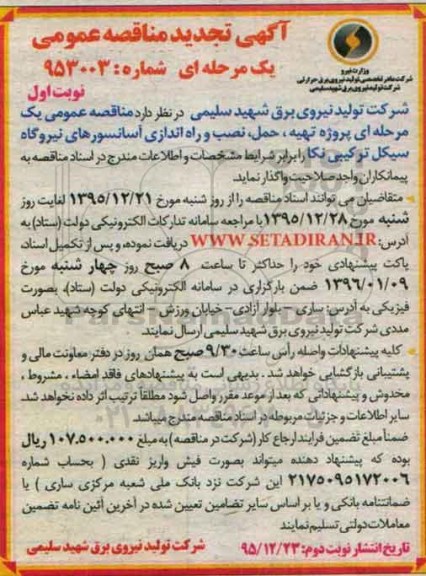 آگهی تجدید مناقصه عمومی
یک مرحله ای شماره: ۹۵۳۰۰۳
وزارت نیرو
شرکت مادر تخصصی تولید نیروی برق حرارتی
شرکت تولید نیروی برق شهید سلیمی
نوبت اول
شرکت تولید نیروی برق شهید سلیمی در نظر دارد مناقصه عمومی یک
مرحله ای پروژه تهیه ، حمل، نصب و راه اندازی آسانسورهای نیروگاه
سیکل ترکیبی نکا را برابر شرایط مشخصات و اطلاعات مندرج در اسناد مناقصه به
پیمانکاران واجد صلاحیت واگذار نماید.
متقاضیان می توانند اسناد مناقصه را از روز شنبه مورخ ۱۳۹۵/۱۲/۲۱ لغایت روز
شنبه مورخ ۱۳۹۵/۱۲/۲۸ با مراجعه سامانه تدارکات الکترونیکی دولت (ستاد) به
آدرس: WWW.SETADIRAN.IR دریافت نموده، و پس از تکمیل اسناد،
پاکت پیشنهادی خود را حداکثر تا ساعت ۸ صبح روز چهار شنبه مورخ
۱۳۹۶/۰۱/۰۹ ضمن بارگزاری در سامانه الکترونیکی دولت (ستاد)، بصورت
فیزیکی به آدرس: ساری - بلوار آزادی - خیابان ورزش - انتهای کوچه شهید عباس
مددی شرکت تولید نیروی برق شهید سلیمی ارسال نمایند.
کلیه پیشنهادات واصله رأس ساعت ۹/۳۰ صبح همان روز در دفتر معاونت مالی و
پشتیبانی بازگشایی خواهد شد . بدیهی است به پیشنهادهای فاقد امضاء ، مشروط ،
مخدوش و پیشنهاداتی که بعد از موعد مقرر واصل شود مطلقاً ترتیب اثر داده نخواهد شد.
سایر اطلاعات و جزئیات مربوطه در اسناد مناقصه مندرج میباشد.
ضمناً مبلغ تضمین فرایند ارجاع کار (شرکت در مناقصه) به مبلغ ۱۰۷.۵۰۰.۰۰۰ ریال
بوده که پیشنهاد دهنده میتواند بصورت فیش واریز نقدی ( بحساب شماره
۲۱۷۵۰۹۵۱۷۲۰۰۶ این شرکت نزد بانک ملی شعبه مرکزی ساری ) یا
ضمانتنامه بانکی و یا بر اساس سایر تضامین تعیین شده در آخرین آئین نامه تضمین
معاملات دولتی تسلیم نمایند
تاریخ انتشار نوبت دوم: ۹۵/۱۲/۲۳
شرکت تولید نیروی برق شهید سلیمی